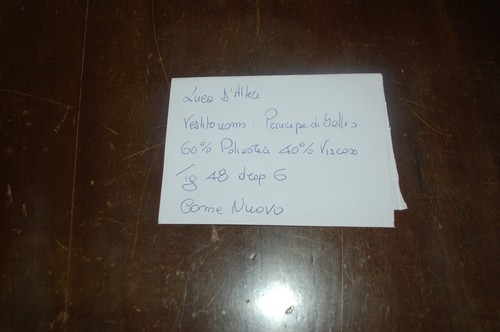 Luca D'Altea
Vestito uomo - Principe di Galles
60% Poliestere 40% Viscosa
Tg 48 drop 6
Come Nuovo